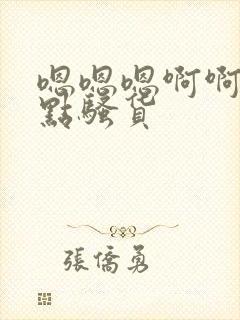 嗯嗯嗯啊啊
點騷貨
張僑勇